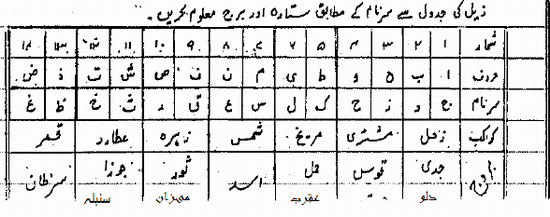 ذیل کی جدول سے سرنام کے مطابق ستارہ اور برج معلوم کریں۔
شمار ۱ ۲ ۳ ۴ ۵ ۶ ۷ ۸ ۹ ۱۰ ۱۱ ۱۲ ۱۳ ۱۴
حروف ا ب ہ و ط ی م ن ف ص ش ت ذ ض
سرنام ج د ز ح ک ل س ع ق ر ث خ ظ غ
کواکب زحل مشتری مریخ شمس زہرہ عطارد قمر
بروج جدی قوس حمل اسد ثور جوزا سرطان
دلو عقرب میزان سنبلہ